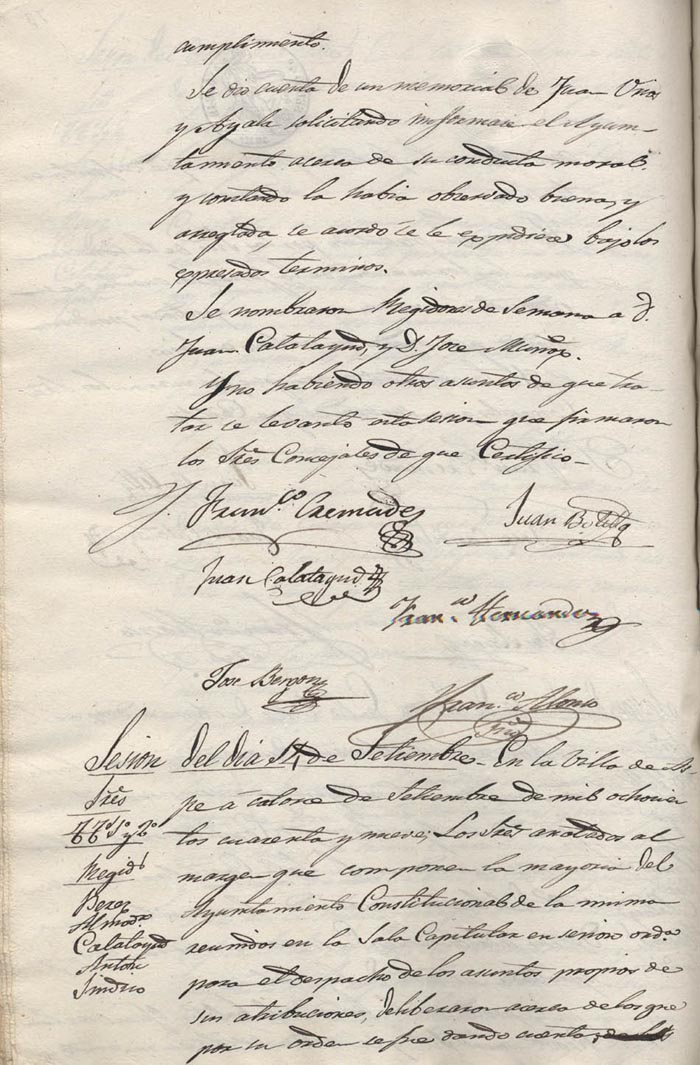 cumplimiento.
Se dio cuenta de un memorial de Juan
y Ayala solicitando informase el Ayun-
tamiento acerca de su conducta moral,
y constando la habia observado buena, y
arreglada, se acordó se le expidiese bajo los
expresados terminos.
Se nombraron Regidores de Semana a D.
Juan Calatayud, y D. Jose Muñoz.
Y no habiendo otros asuntos de que tra-
tar se levantó esta sesion que firmaron
los Sres Concejales de que Certifico-
Fran.co Cremades
Juan Botella
Juan Calatayud
Fran.co Hernandez
Jose
Fran.co Alonso
Srio
Sesion del dia 14 de Setiembre. En la Villa de As-
pe á catorce de Setiembre de mil ochocien
tos cuarenta y nueve; Los Sres anotados al
margen que componen la mayoria del
Ayuntamiento Constitucional de la misma
reunidos en la Sala Capitular en sesion ord.a
para el despacho de los asuntos propios de
sus atribuciones, deliberaron acerca de los que
por su orden se fue dando cuenta;
Sres
1o y 2o
Regid.s
Almodr.
Calatayud
Anton
Sindico